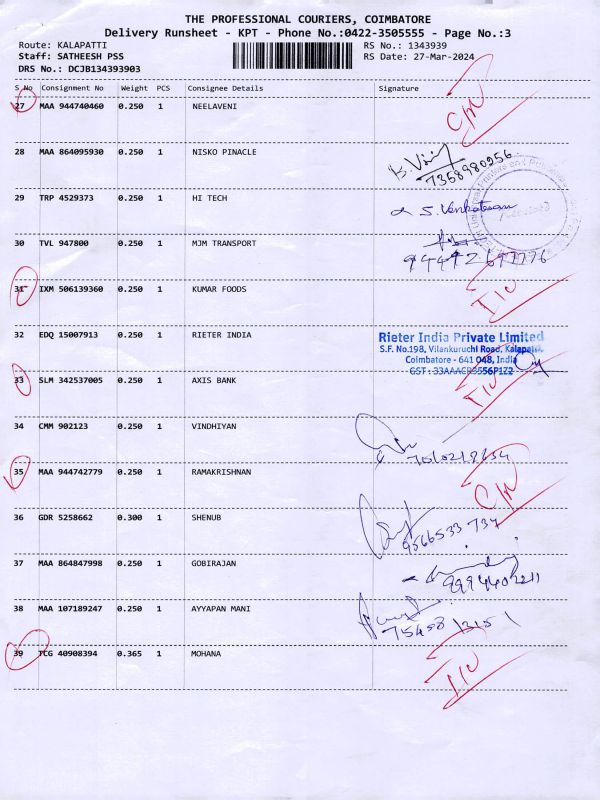 THE PROFESSIONAL COURIERS, COIMBATORE
Delivery Runsheet - KPT - Phone No.:0422-3505555 - Page No.:3
Route: KALAPATTI RS No.: 1343939
Staff: SATHEESH PSS RS Date: 27-Mar-2024
DRS No.: DCJB134393903
S.No Consignment No Weight PCS Consignee Details Signature
27 MAA 944740460 0.250 1 NEELAVENI
28 MAA 864095930 0.250 1 NISKO PINACLE
7358980956
29 TRP 4529373 0.250 1 HI TECH S. Venkatesan
30 TVL 947800 0.250 1 MJM TRANSPORT
31 IXM 506139360 0.250 1 KUMAR FOODS
32 EDQ 15007913 0.250 1 RIETER INDIA
Rieter India Private Limited
S.F. No.198, Vilankuruchi Road, Kalapatti,
Coimbatore - 641 048, India
33 SLM 342537005 0.250 1 AXIS BANK
34 CMM 902123 0.250 1 VINDHIYAN
35 MAA 944742779 0.250 1 RAMAKRISHNAN
36 GDR 5258662 0.300 1 SHENUB
9566533737
37 MAA 864847998 0.250 1 GOBIRAJAN
38 MAA 107189247 0.250 1 AYYAPAN MANI
39 TCG 40908394 0.365 1 MOHANA